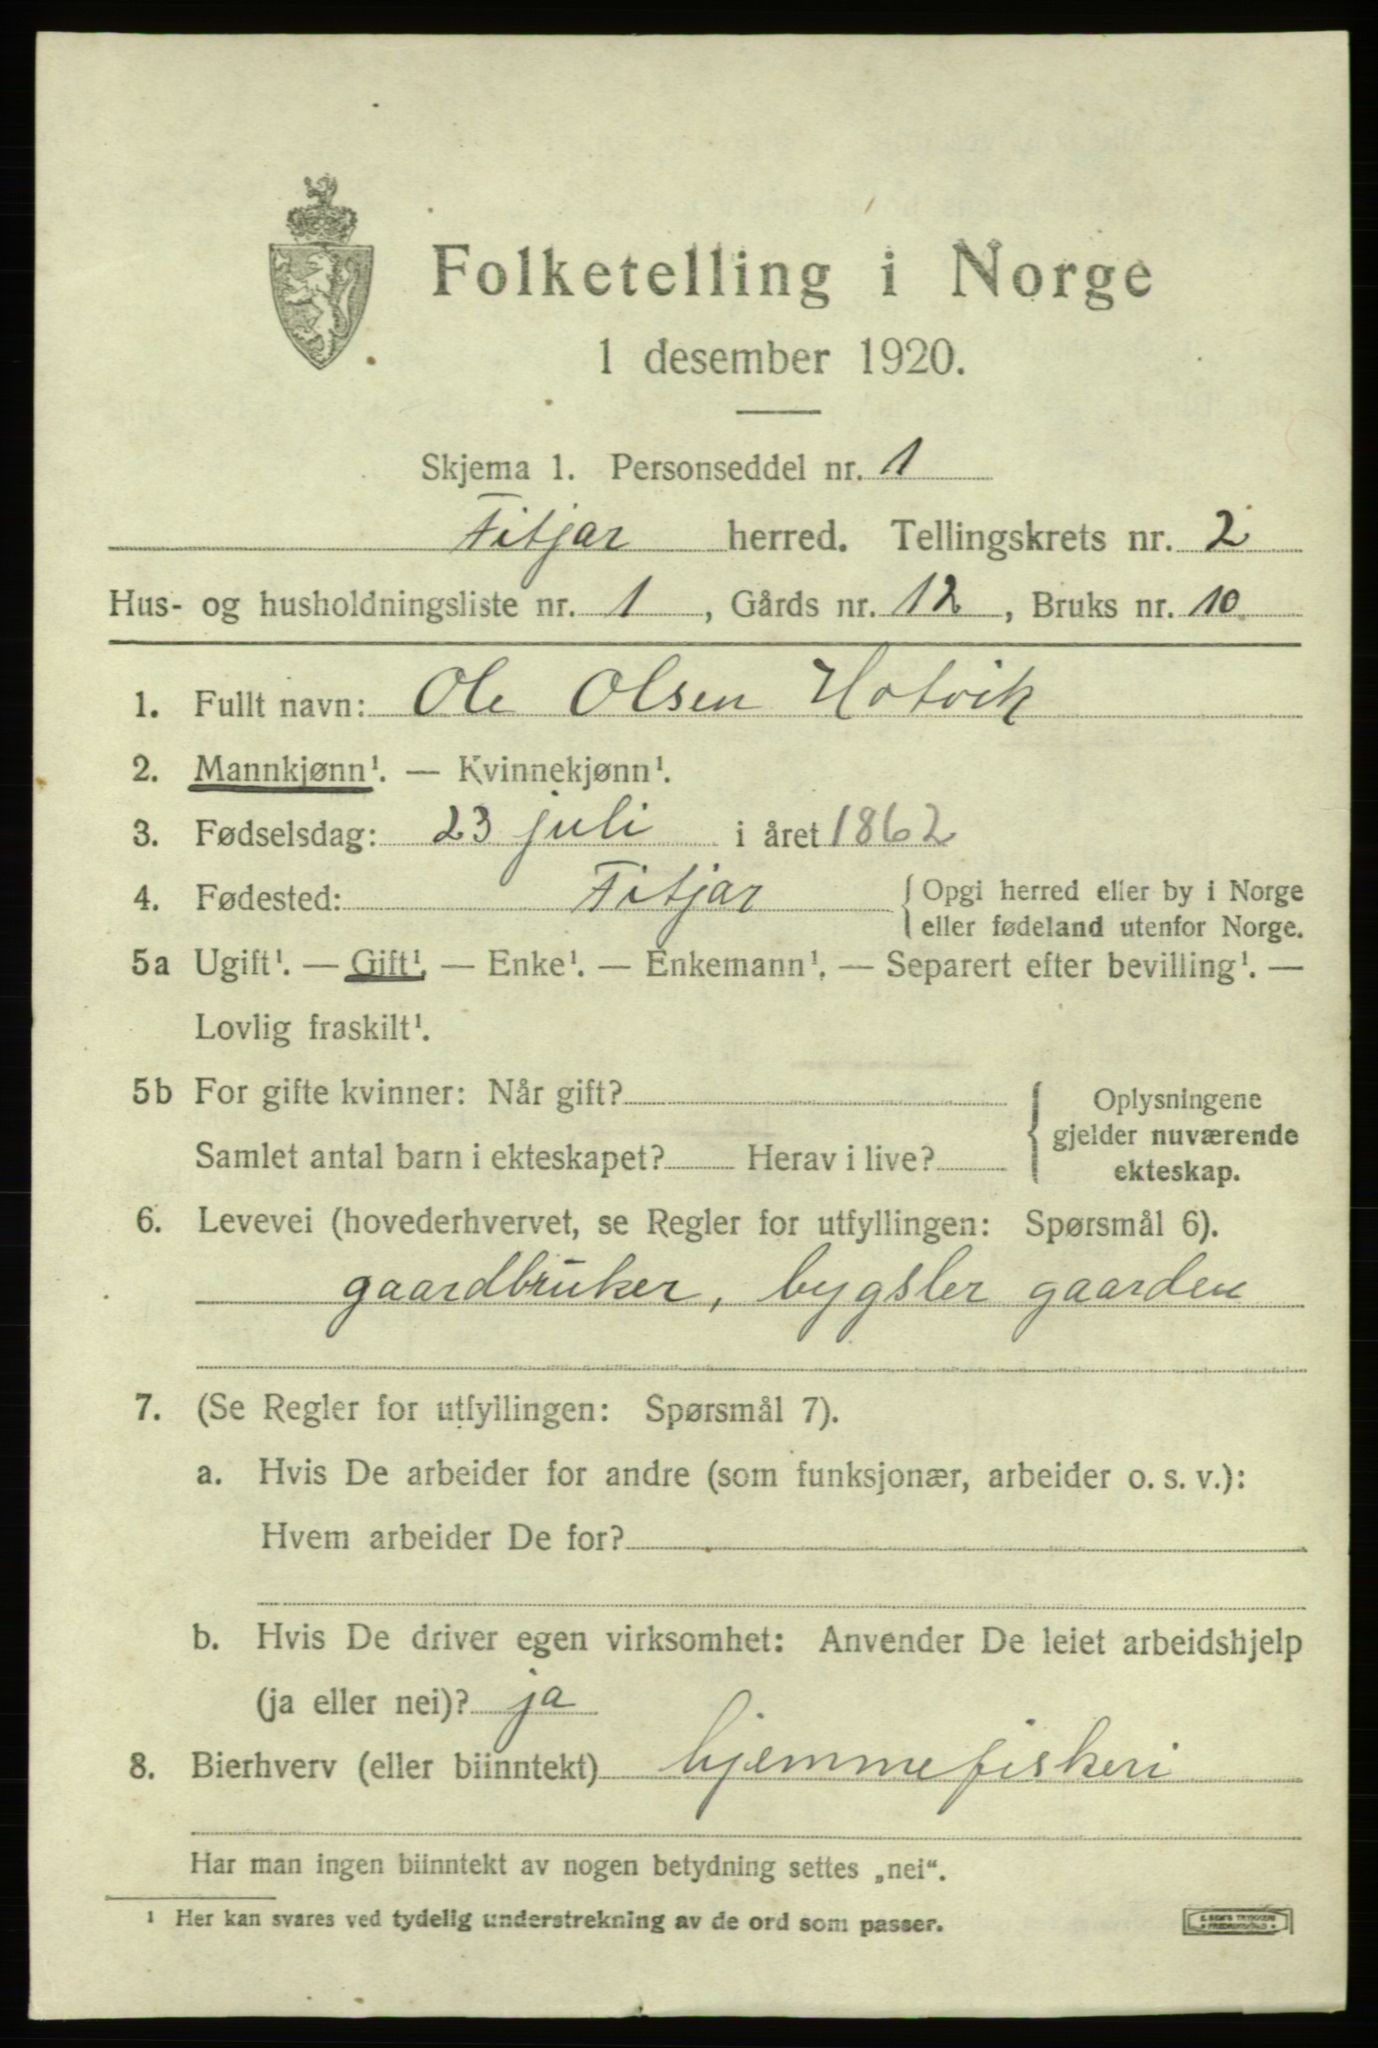 Folketelling i Norge
1 desember 1920.
Skjema 1. Personseddel nr. 1
Fitjar herred. Tellingskrets nr. 2
Hus- og husholdningsliste nr. 1, Gårds nr. 12, Bruks nr. 10
1. Fullt navn: Ole Olsen Hotvik
2. Mannkjønn¹. — Kvinnekjønn¹.
3. Fødselsdag: 23 juli i året 1862
4. Fødested: Fitjar { Opgi herred eller by i Norge
eller fødeland utenfor Norge.
5a Ugift¹. — Gift¹. — Enke¹. — Enkemann¹. — Separert efter bevilling¹. —
Lovlig fraskilt¹.
5b For gifte kvinner: Når gift?
Samlet antal barn i ekteskapet? Herav i live?
{ Oplysningene
gjelder nuværende
ekteskap.
6. Levevei (hovederhvervet, se Regler for utfyllingen: Spørsmål 6).
gaardbruker, bygsler gaarden
7. (Se Regler for utfyllingen: Spørsmål 7).
a. Hvis De arbeider for andre (som funksjonær, arbeider o. s. v.):
Hvem arbeider De for?
b. Hvis De driver egen virksomhet: Anvender De leiet arbeidshjelp
(ja eller nei)? ja
8. Bierhverv (eller biinntekt) hjemmefiskeri
Har man ingen biinntekt av nogen betydning settes „nei“.
¹ Her kan svares ved tydelig understrekning av de ord som passer.